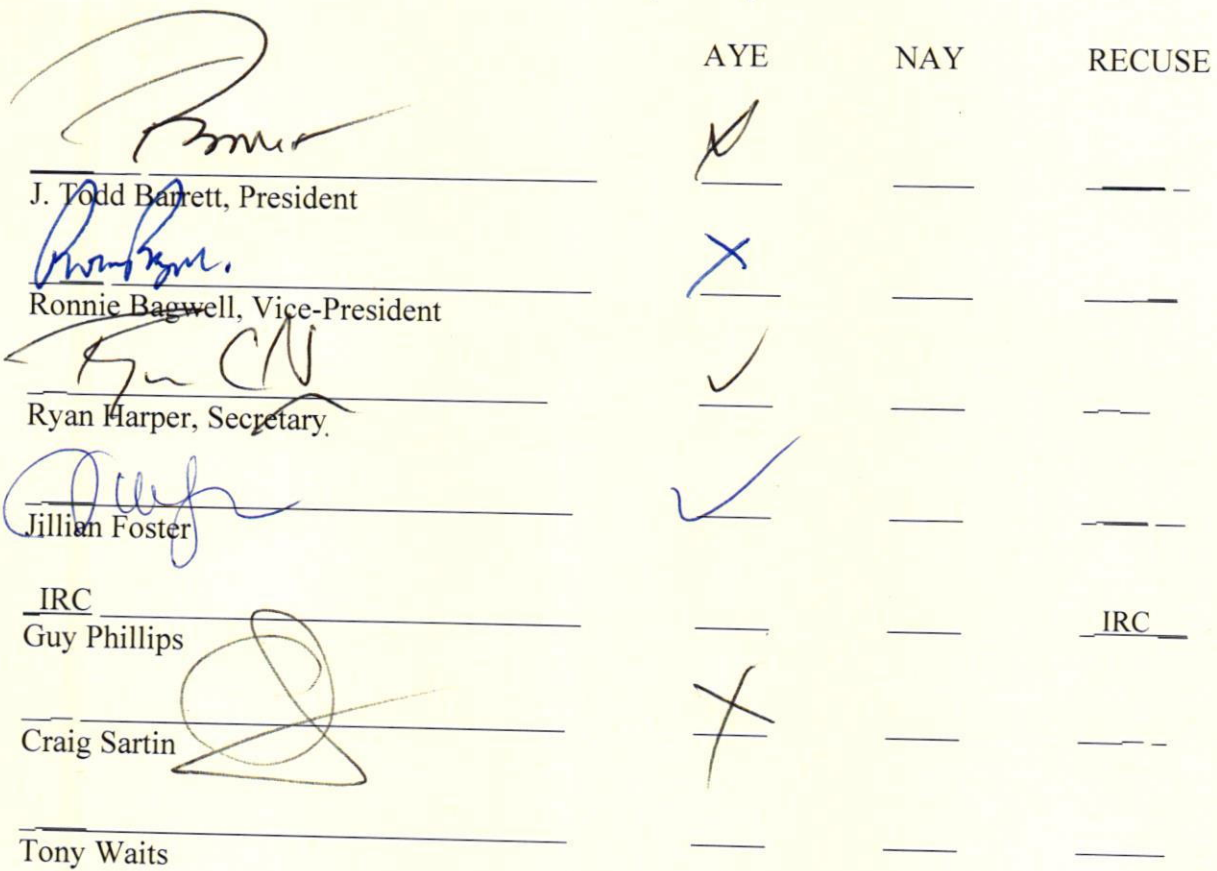 AYE NAY RECUSE
J. Todd Barrett, President
Ronnie Bagwell, Vice-President
Ryan Harper, Secretary
Jillian Foster
IRC IRC
Guy Phillips
Craig Sartin
Tony Waits